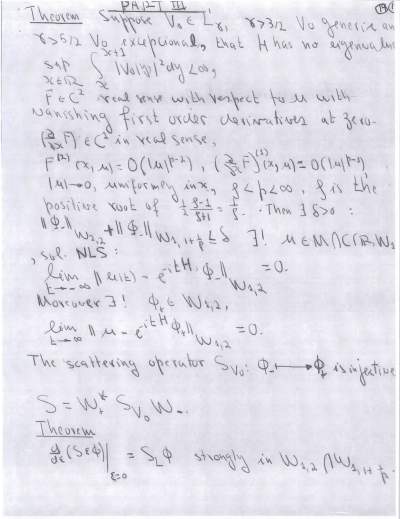 PART III
Theorem Suppose V₀ ∈ L¹γ, γ>3/2 V₀ generic an
γ>5/2 V₀ excepcional, that H has no eigenvalue
sup x∈R ∫ₓˣ⁺¹ |V₀(y)|² dy < ∞,
F ∈ C² real sense with respect to u with
vanishing first order derivatives at zero.
(∂/∂x F) ∈ C² in real sense,
F⁽²⁾(x,u) = O(|u|ᵖ⁻²), (∂/∂x F)⁽¹⁾(x,u) = O(|u|ᵖ⁻¹)
|u|→0, uniformly in x, ρ<p<∞, ρ is the
positive root of ½ (ρ-1)/(ρ+1) = 1/ρ. Then ∃ δ>0:
‖Φ₋‖W₂,₂ + ‖Φ₋‖W₁,₁₊1/p ≤ δ ∃! u ∈ M∩C(R,W₁
, sol. NLS:
lim t→-∞ ‖u(t) - e⁻ⁱᵗᴴ Φ₋‖W₁,₂ = 0.
Moreover ∃! Φ₊ ∈ W₁,₂,
lim t→∞ ‖u - e⁻ⁱᵗᴴ Φ₊‖W₁,₂ = 0.
The scattering operator S_V₀: Φ₋ ↦ Φ₊ is injective
S = W₊* S_V₀ W₋.
Theorem
d/dε (S εφ)|ε=0 = S_L φ strongly in W₂,₂ ∩ W₁,₁₊1/p.